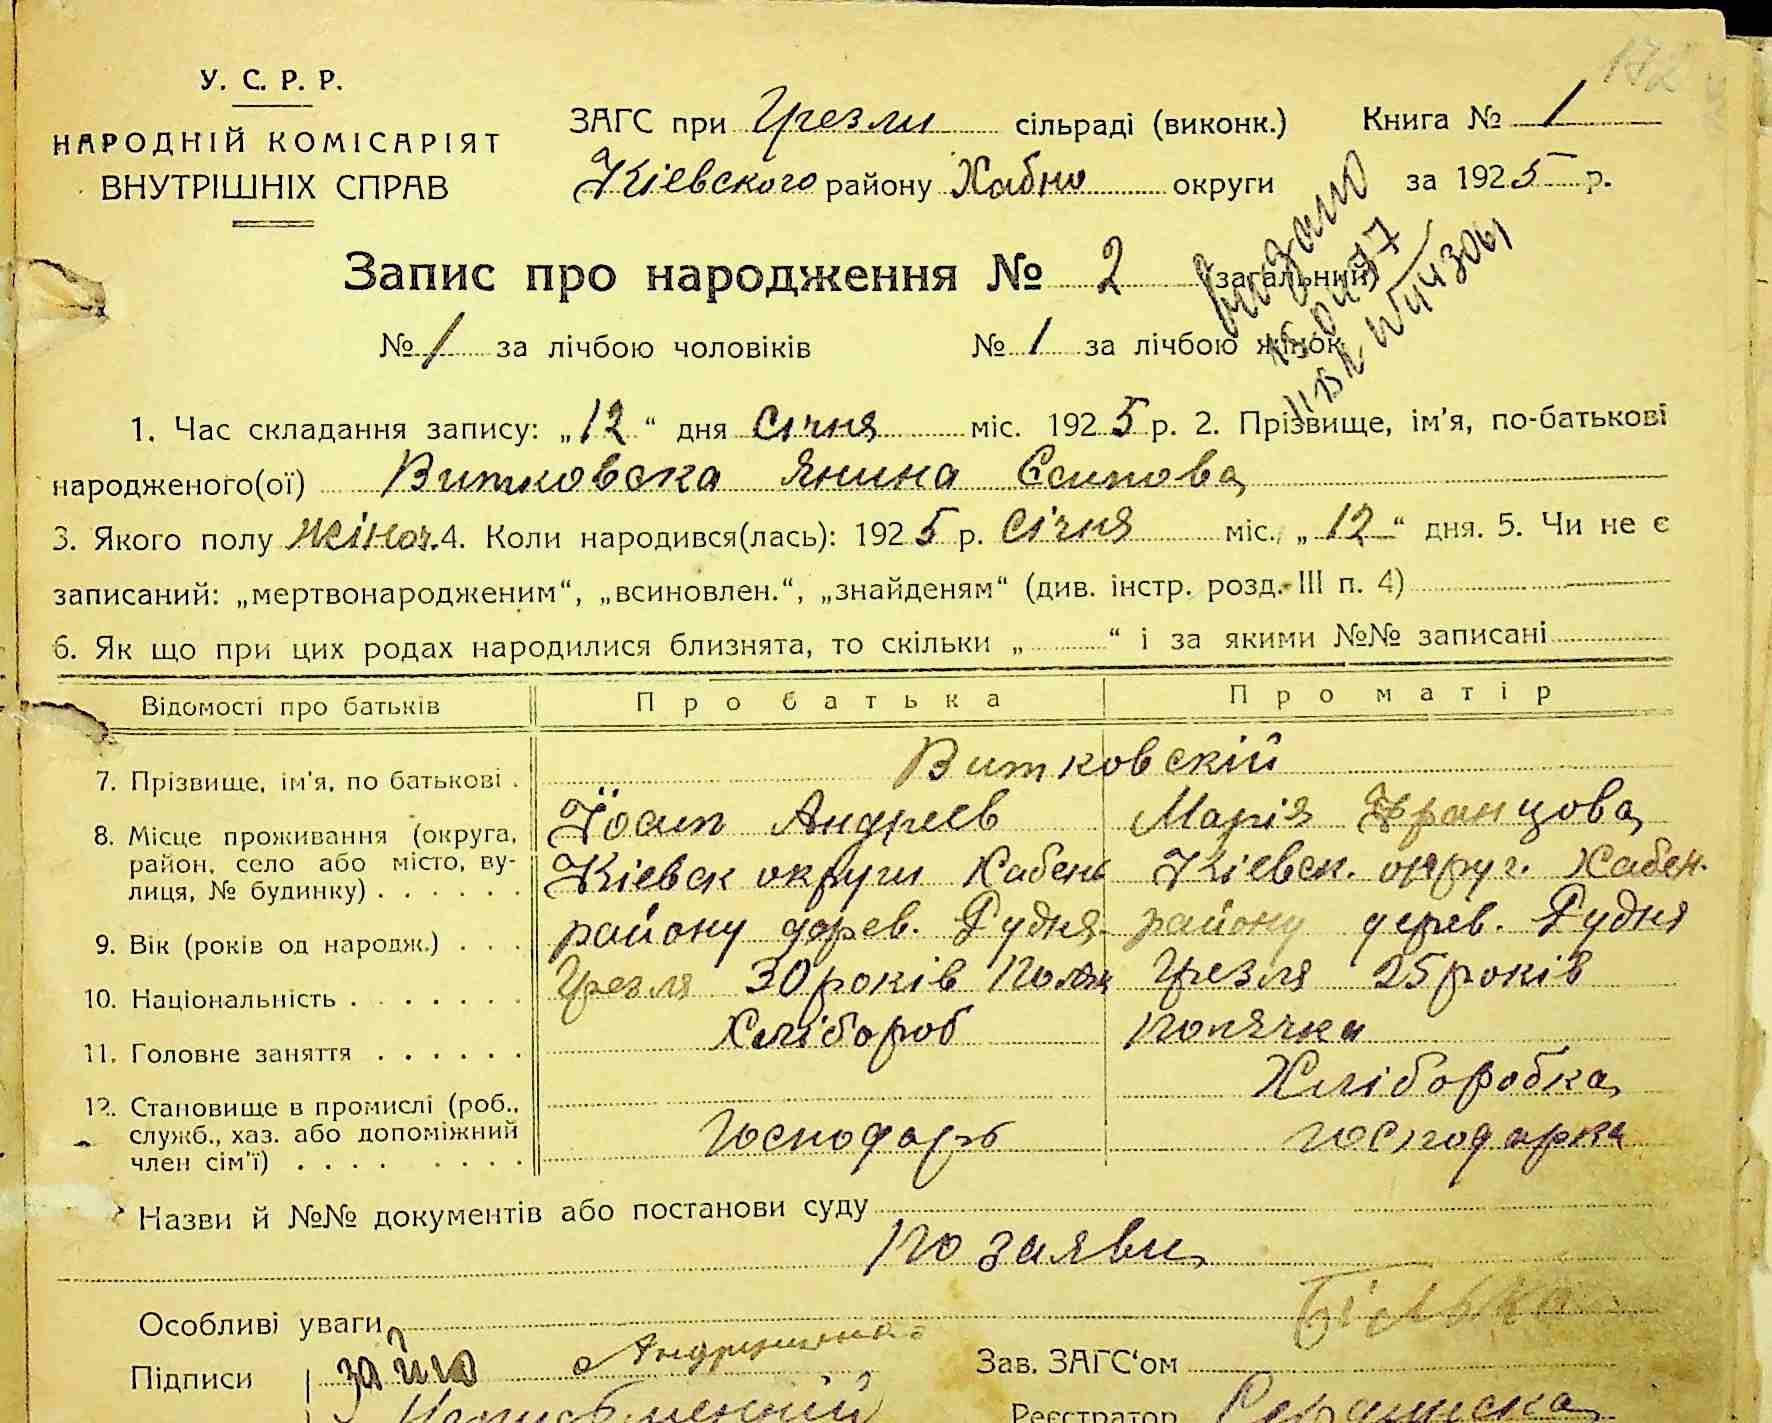 172
У. С. Р. Р.
НАРОДНІЙ КОМІСАРІЯТ
ВНУТРІШНІХ СПРАВ
ЗАГС при Грезли сільраді (виконк.) Книга № 1
Кіевского району Хабно округи за 1925 р.
Видано
Запис про народження № 2 (загальний)
№ 1 за лічбою чоловіків № 1 за лічбою жінок
1. Час складання запису: „12“ дня Січня міс. 1925 р. 2. Прізвище, ім'я, по-батькові
народженого(ої) Витковска Янина Єсипова
3. Якого полу жіноч. 4. Коли народився(лась): 1925 р. Січня міс. „12“ дня. 5. Чи не є
записаний: „мертвонародженим“, „всиновлен.“, „знайденям“ (див. інстр. розд. III п. 4)
6. Як що при цих родах народилися близнята, то скільки „ “ і за якими №№ записані
Відомості про батьків Про батька Про матір
7. Прізвище, ім'я, по батькові . Витковскій
Йосип Андреев Марія Францова
8. Місце проживання (округа, район, село або місто, вулиця, № будинку) . . . . . .
Кіевск округи Хабень Кіевск. округ. Хабен.
9. Вік (років од народж.) . . .
району дерев. Рудня району дерев. Рудня
10. Національність . . . . . . .
Грезля 30 років Поляк Грезля 25 років
11. Головне заняття . . . . . .
Хлібороб полячка
Хліборобка
12. Становище в промислі (роб., служб., хаз. або допоміжний член сім'ї) . . . . . . . . .
Господарь господарка
Назви й №№ документів або постанови суду
По заяви
Особливі уваги
Підписи за него
Зав. ЗАГС'ом
Реєстратор